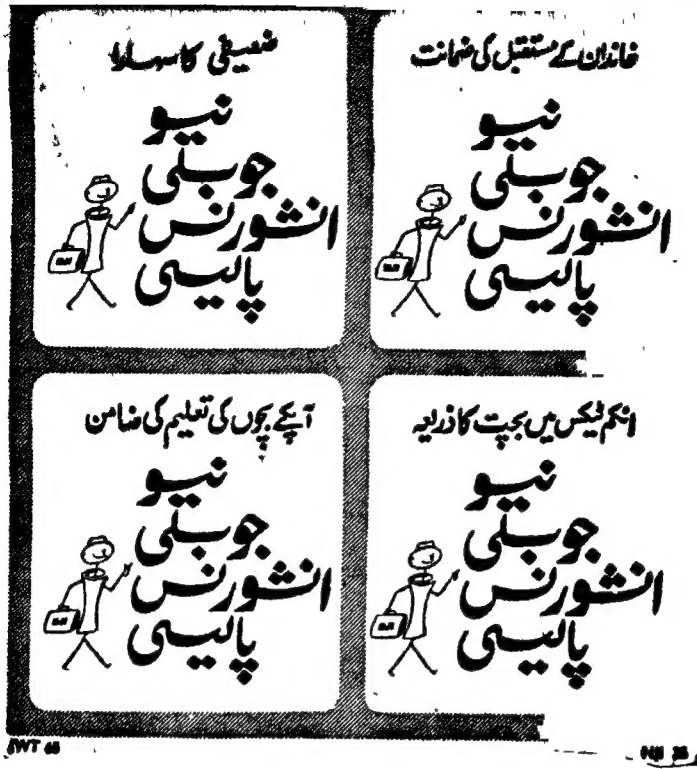 خاندان کے مستقبل کی ضمانت
نیو
جوبلی
انشورنس
پالیسی
ضعیفی کا سہارا
نیو
جوبلی
انشورنس
پالیسی
انکم ٹیکس میں بچت کا ذریعہ
نیو
جوبلی
انشورنس
پالیسی
آپکے بچوں کی تعلیم کی ضامن
نیو
جوبلی
انشورنس
پالیسی